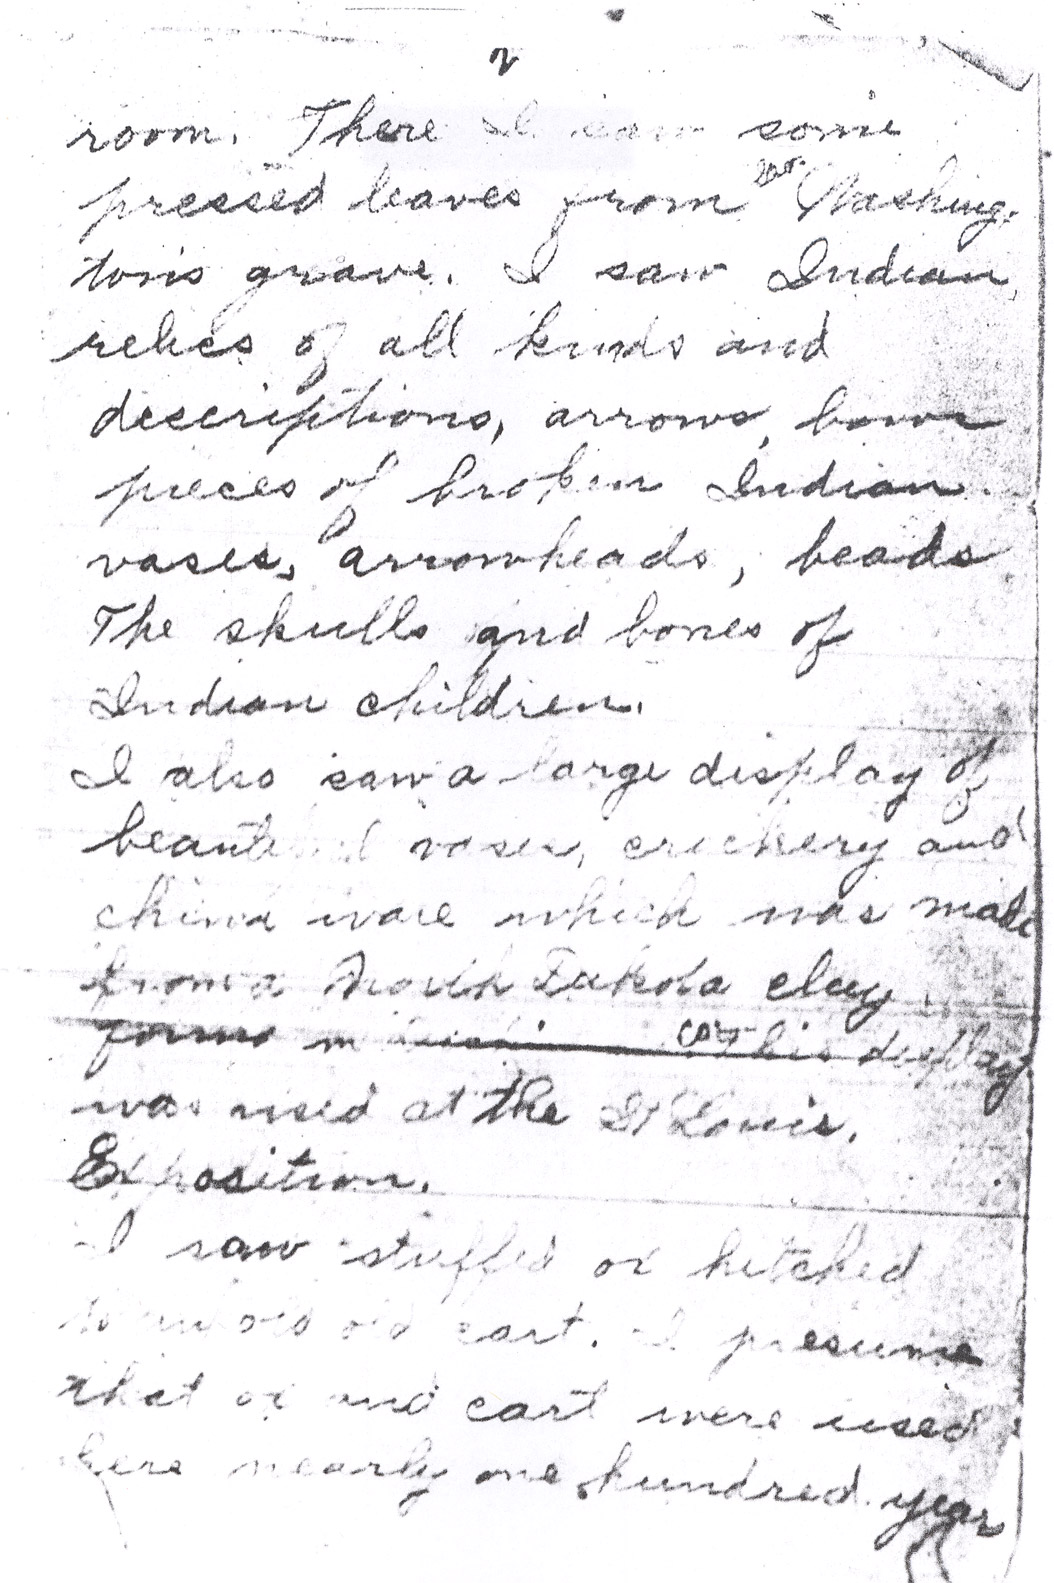 2
room. There I saw some
pressed leaves from Geo. Washing-
ton's grave. I saw Indian
relics of all kinds and
descriptions, arrows, bows
pieces of broken Indian
vases, arrowheads, beads
The skulls and bones of
Indian children.
I also saw a large display of
beautiful vases, crockery and
china ware which was made
from a North Dakota clay.
found in This display
was used at the St Louis.
Exposition.
I saw stuffed ox hitched
to an old cart. I presume
that ox and cart were used
here nearly one hundred years